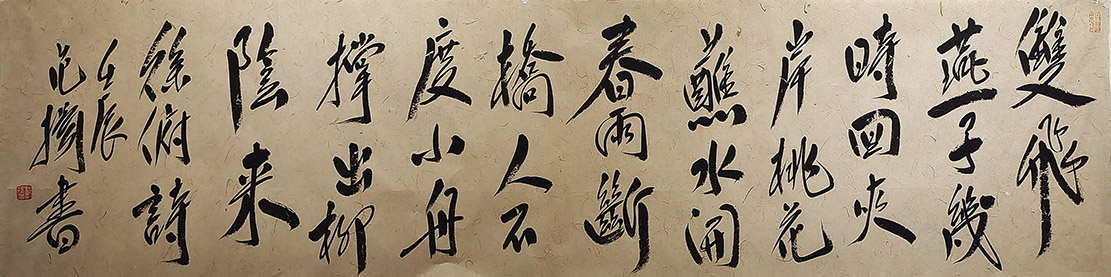 雙飛
燕子幾
時回夾
岸桃花
蘸水開
春雨斷
橋人不
度小舟
撑出柳
陰来
徐俯詩
壬辰
范書